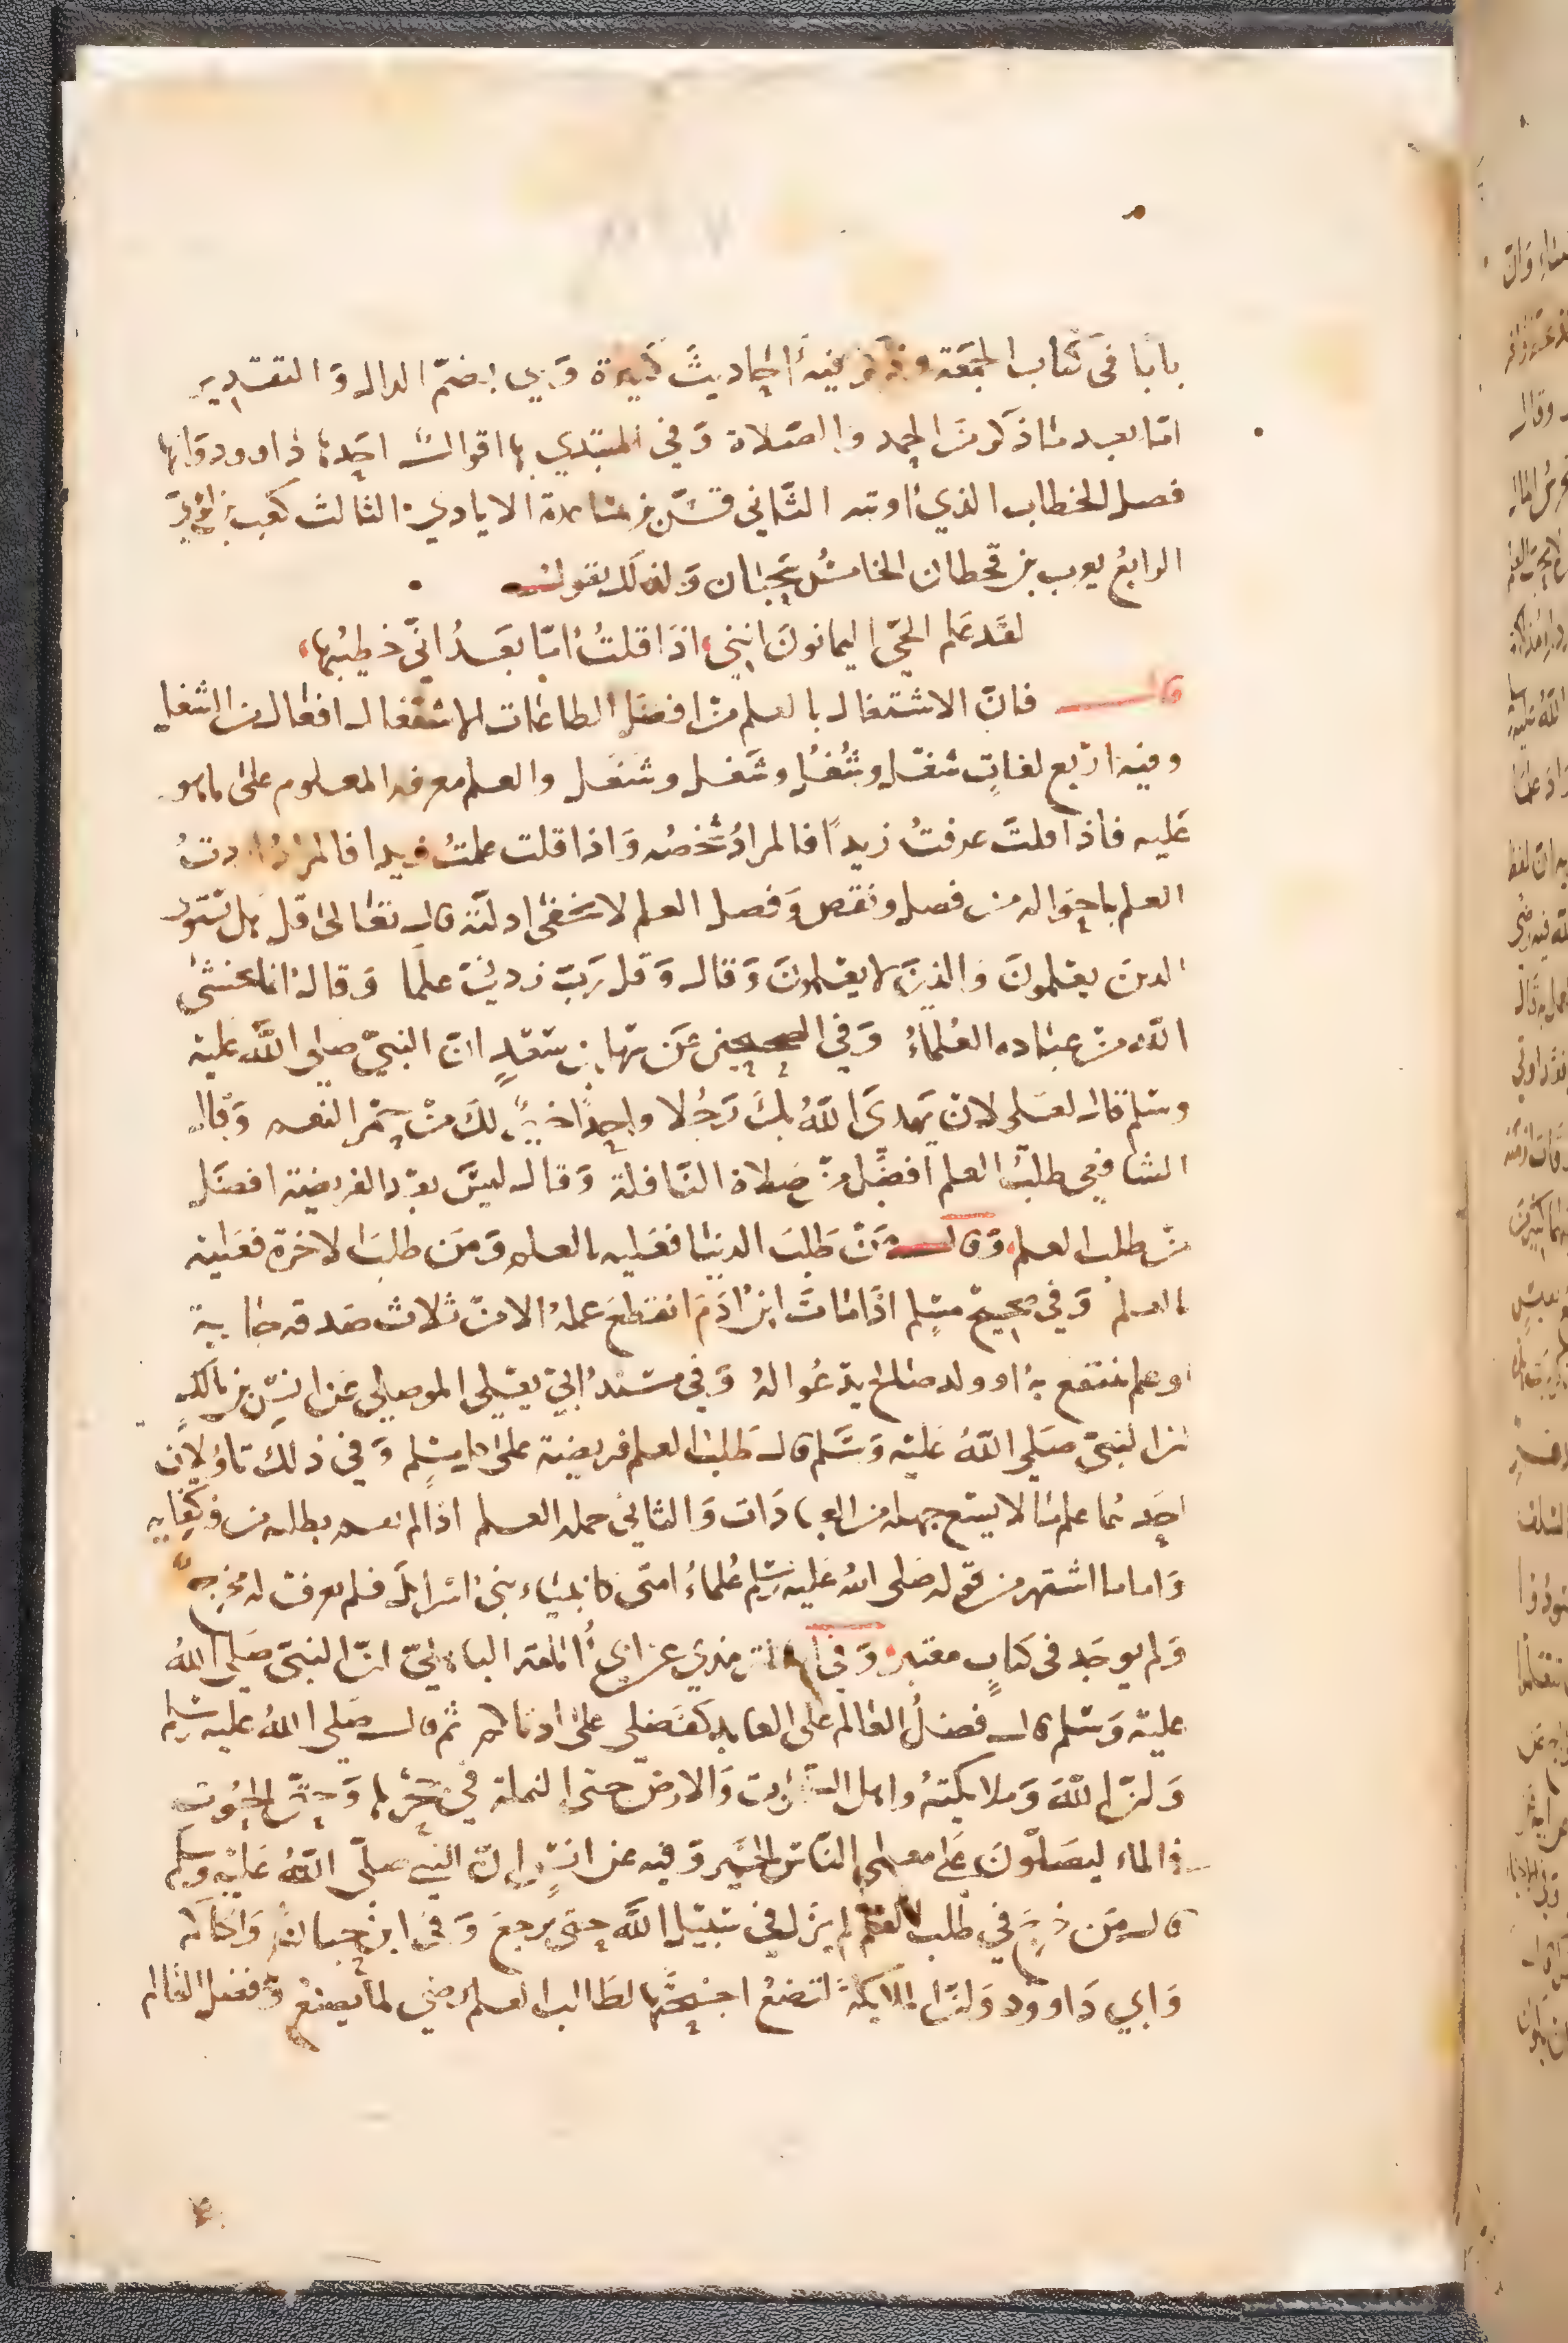 بابا في كتاب الجمعة وذكر فيه احاديث كثيرة وهي بضم الدال والتقدير
اما بعد ما ذكر من الحمد والصلاة وفي المبتدي بها اقوال احدها داوود وانها
فصل الخطاب الذي اوتيه الثاني قس بن ساعدة الايادي الثالث كعب بن لؤي
الرابع يعرب بن قحطان الخامس سحبان ولذلك يقول
لقد علم الحي اليمانون انني اذا قلت اما بعد اني خطيبها
قال فان الاشتغال بالعلم من افضل الطاعات الاشتغال افتعال من الشغل
وفيه اربع لغات شغل وشغل وشغل وشغل والعلم معرفة المعلوم على ما هو
عليه فاذا قلت عرفت زيدا فالمراد شخصه واذا قلت علمت زيدا فالمراد اردت
العلم باحواله من فضل ونقص وفضل العلم لا تخفى ادلته قال تعالى قل هل يستوي
الذين يعلمون والذين لا يعلمون وقال وقل رب زدني علما وقال انما يخشى
الله من عباده العلماء وفي الصحيحين عن سهل بن سعد ان النبي صلى الله عليه
وسلم قال لعلي لان يهدي الله بك رجلا واحدا خير لك من حمر النعم وقال
الشافعي طلب العلم افضل من صلاة النافلة وقال ليس بعد الفريضة افضل
من طلب العلم وقال من طلب الدنيا فعليه بالعلم ومن طلب الاخرة فعليه
بالعلم وفي صحيح مسلم اذا مات ابن ادم انقطع عمله الا من ثلاث صدقة جارية
او علم ينتفع به او ولد صالح يدعو له وفي مسند ابي يعلى الموصلي عن انس بن مالك
ان النبي صلى الله عليه وسلم قال طلب العلم فريضة على كل مسلم وفي ذلك تاويلان
احدهما علم ما لا يسع جهله من العبادات والثاني جملة العلم اذا لم يقم بطلبه من فيه كفاية
واما ما اشتهر من قوله صلى الله عليه وسلم علماء امتي كانبياء بني اسرائل فلم يعرف له مخرج
ولم يوجد في كتاب معتبر وفي الترمذي عن ابي أمامة الباهلي ان النبي صلى الله
عليه وسلم قال فضل العالم على العابد كفضلي على ادناكم ثم قال صلى الله عليه وسلم
وان الله وملائكته واهل السموات والارض حتى النملة في جحرها وحتى الحوت
في الماء ليصلون على معلمي الناس الخير وفيه عن انس ان النبي صلى الله عليه وسلم
قال من خرج في طلب العلم لم يزل في سبيل الله حتى يرجع وفي ابن حبان والحاكم
وابي داوود وان الملائكة لتضع اجنحتها لطالب العلم رضى لما يصنع وفضل العالم